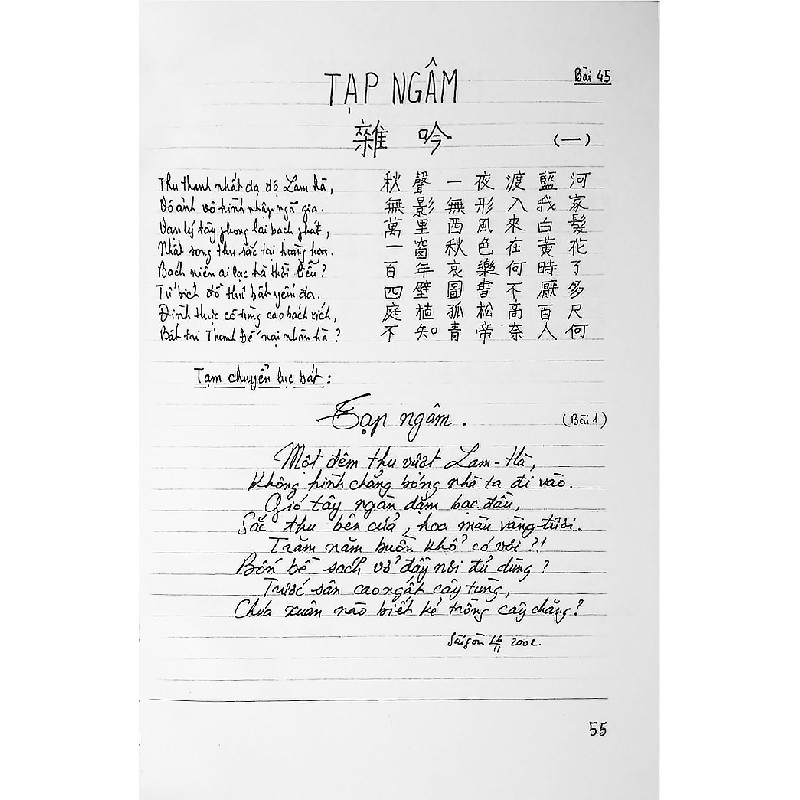 Bài 45
TẠP NGÂM
雜吟 (一)
Thu thanh nhất dạ độ Lam hà,
秋聲一夜渡藍河
Vô ảnh vô hình nhập ngã gia.
無影無形入我家
Vạn lý tây phong lai bạch phát,
萬里西風來白髮
Nhất song thu sắc tại hoàng hoa.
一窗秋色在黃花
Bách niên ai lạc hà thời liễu?
百年哀樂何時了
Tứ bích đồ thư bất yếm đa.
四壁圖書不厭多
Đình thực cô tùng cao bách xích,
庭植孤松高百尺
Bất tri Thanh đế nại nhân hà?
不知青帝奈人何
Tạm chuyển lục bát:
Tạp ngâm. (Bài 1)
Một đêm thu vượt Lam-Hà,
Không hình chẳng bóng nhà ta đi vào.
Gió tây ngàn dặm bạc đầu,
Sắc thu bên cửa, hoa màu vàng tươi.
Trăm năm buồn khổ có vơi?!
Bốn bề sách vở đầy nơi đủ dùng?
Trước sân cao ngất cây tùng,
Chúa xuân nào biết kẻ trồng cây chăng?
Sàigòn 2002.
55